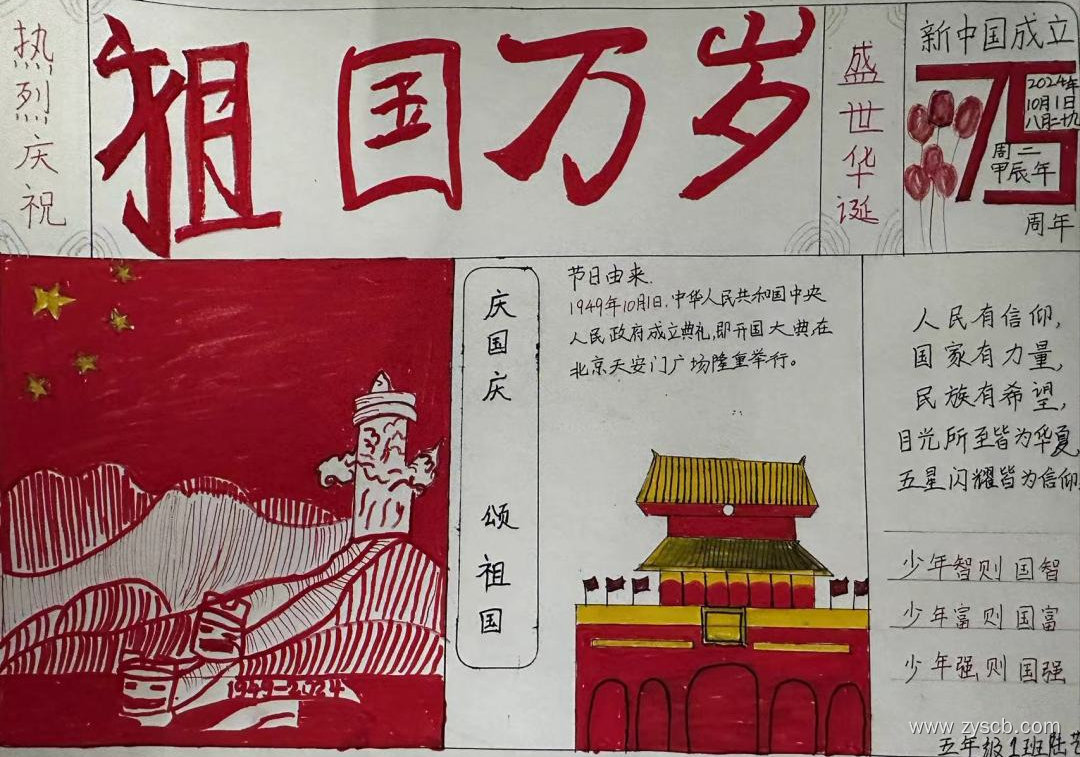 热烈庆祝
祖国万岁
盛世华诞
新中国成立
75
2024年
10月1日
八月二十九
周二
甲辰年
周年
1949-2024
庆国庆
颂祖国
节日由来.
1949年10月1日,中华人民共和国中央
人民政府成立典礼,即开国大典在
北京天安门广场隆重举行。
人民有信仰,
国家有力量,
民族有希望,
目光所至皆为华夏
五星闪耀皆为信仰
少年智则国智
少年富则国富
少年强则国强
www.zyscb.com
五年级1班陆